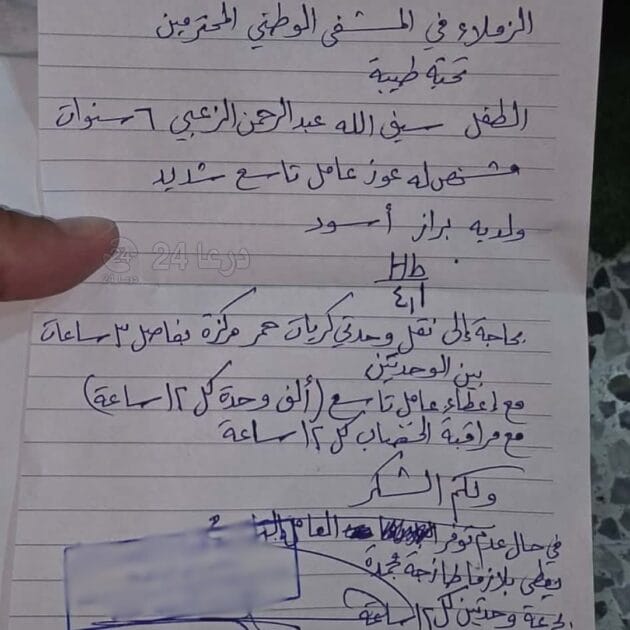 الزملاء في المشفى الوطني المحترمين
تحية طيبة
الطفل سيف الله عبدالرحمن الزعبي ٦ سنوات
مشخص له عوز عامل تاسع شديد
ولديه براز أسود
Hb
٤,١
بحاجة إلى نقل وحدتي كريات حمر مركزة بفاصل ٣ ساعات
بين الوحدتين
مع إعطاء عامل تاسع (ألف وحدة كل ١٢ ساعة)
مع مراقبة الخضاب كل ١٢ ساعة
ولكم الشكر
في حال عدم توفر العامل
يعطى بلازما طازجة مجمدة
وحدتين كل ١٢ ساعة
درعا 24